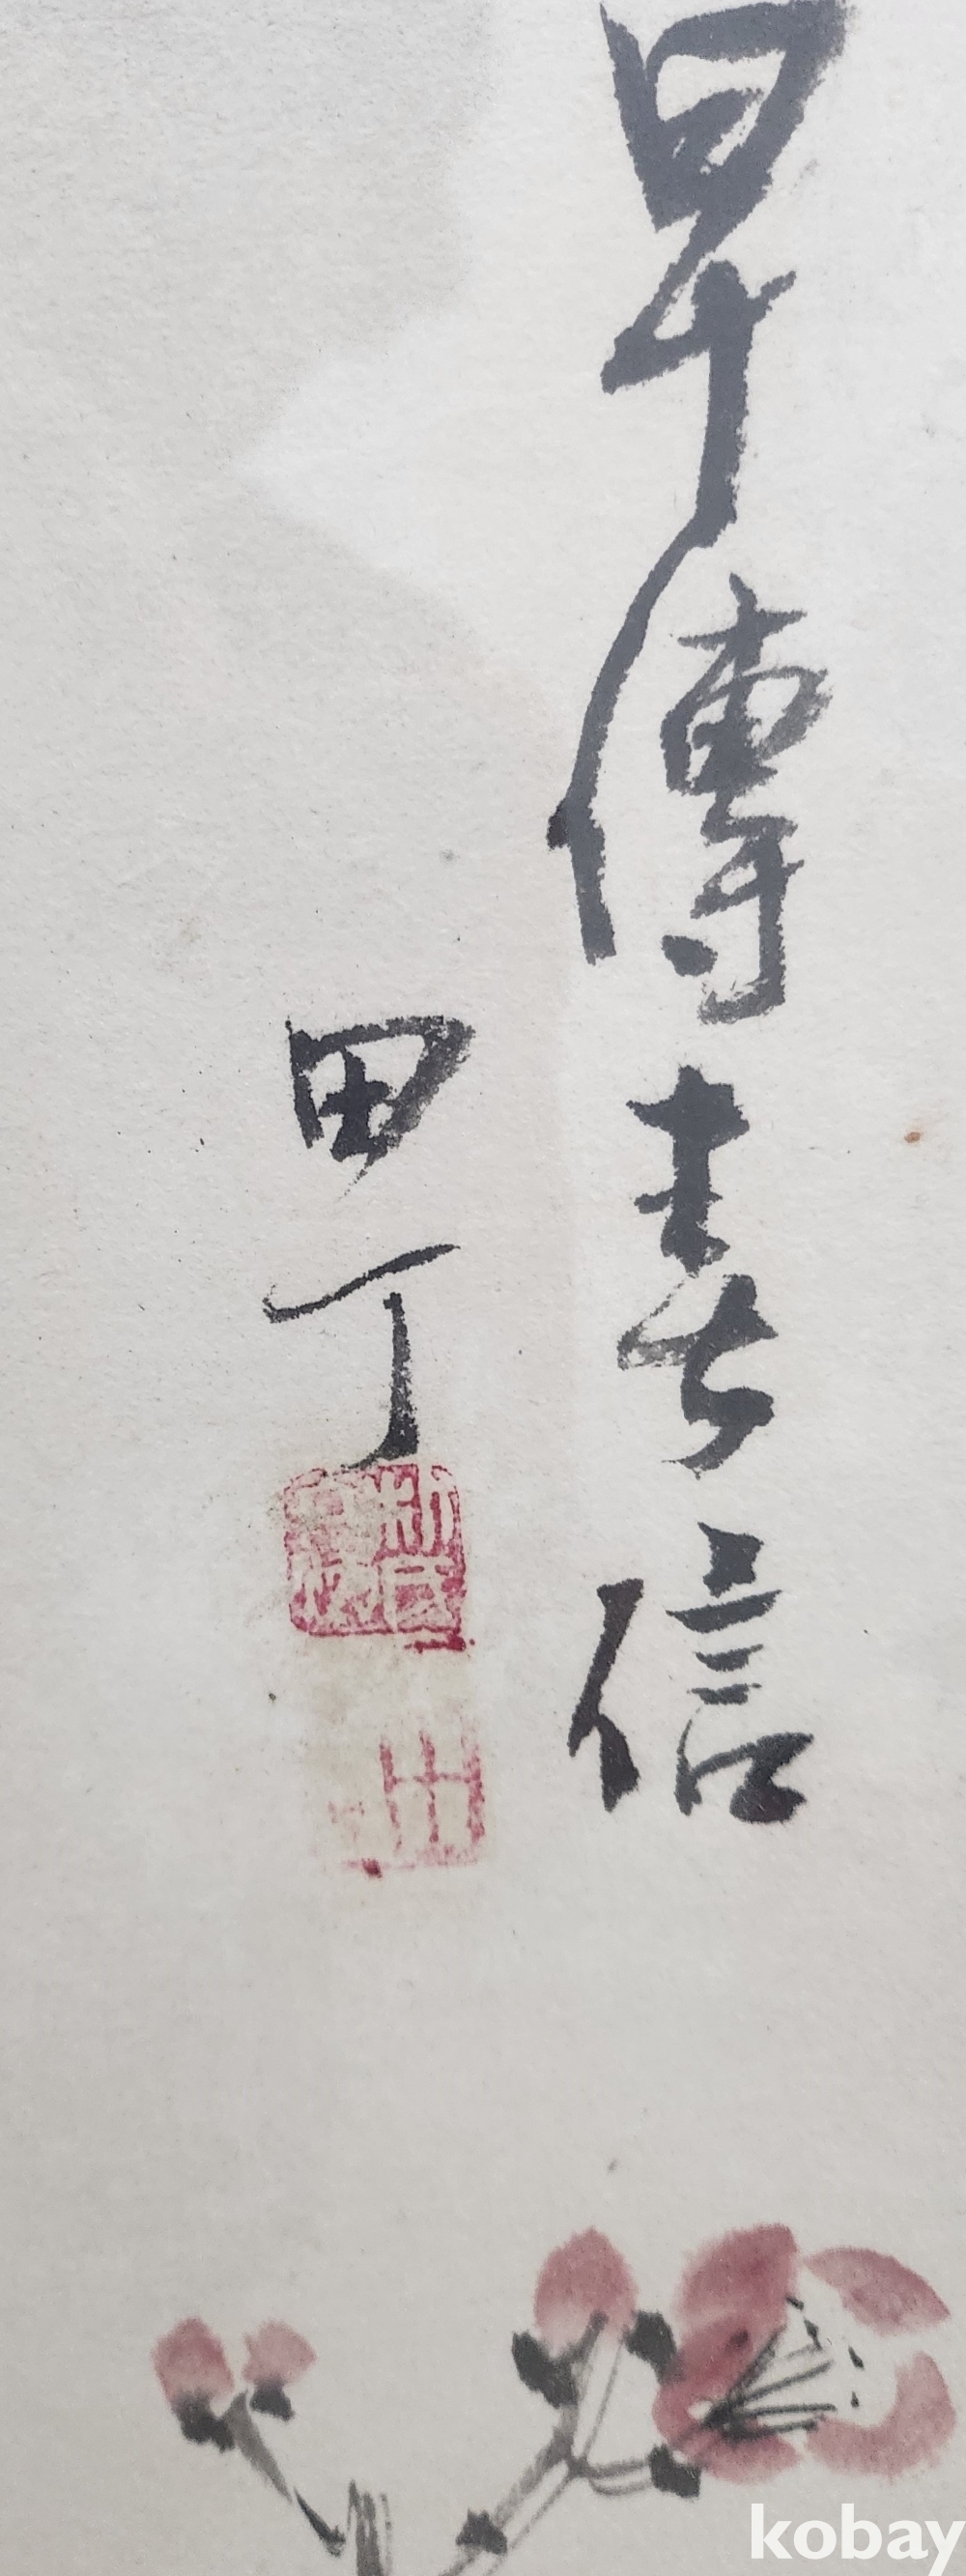 早傳春信
田丁
kobay